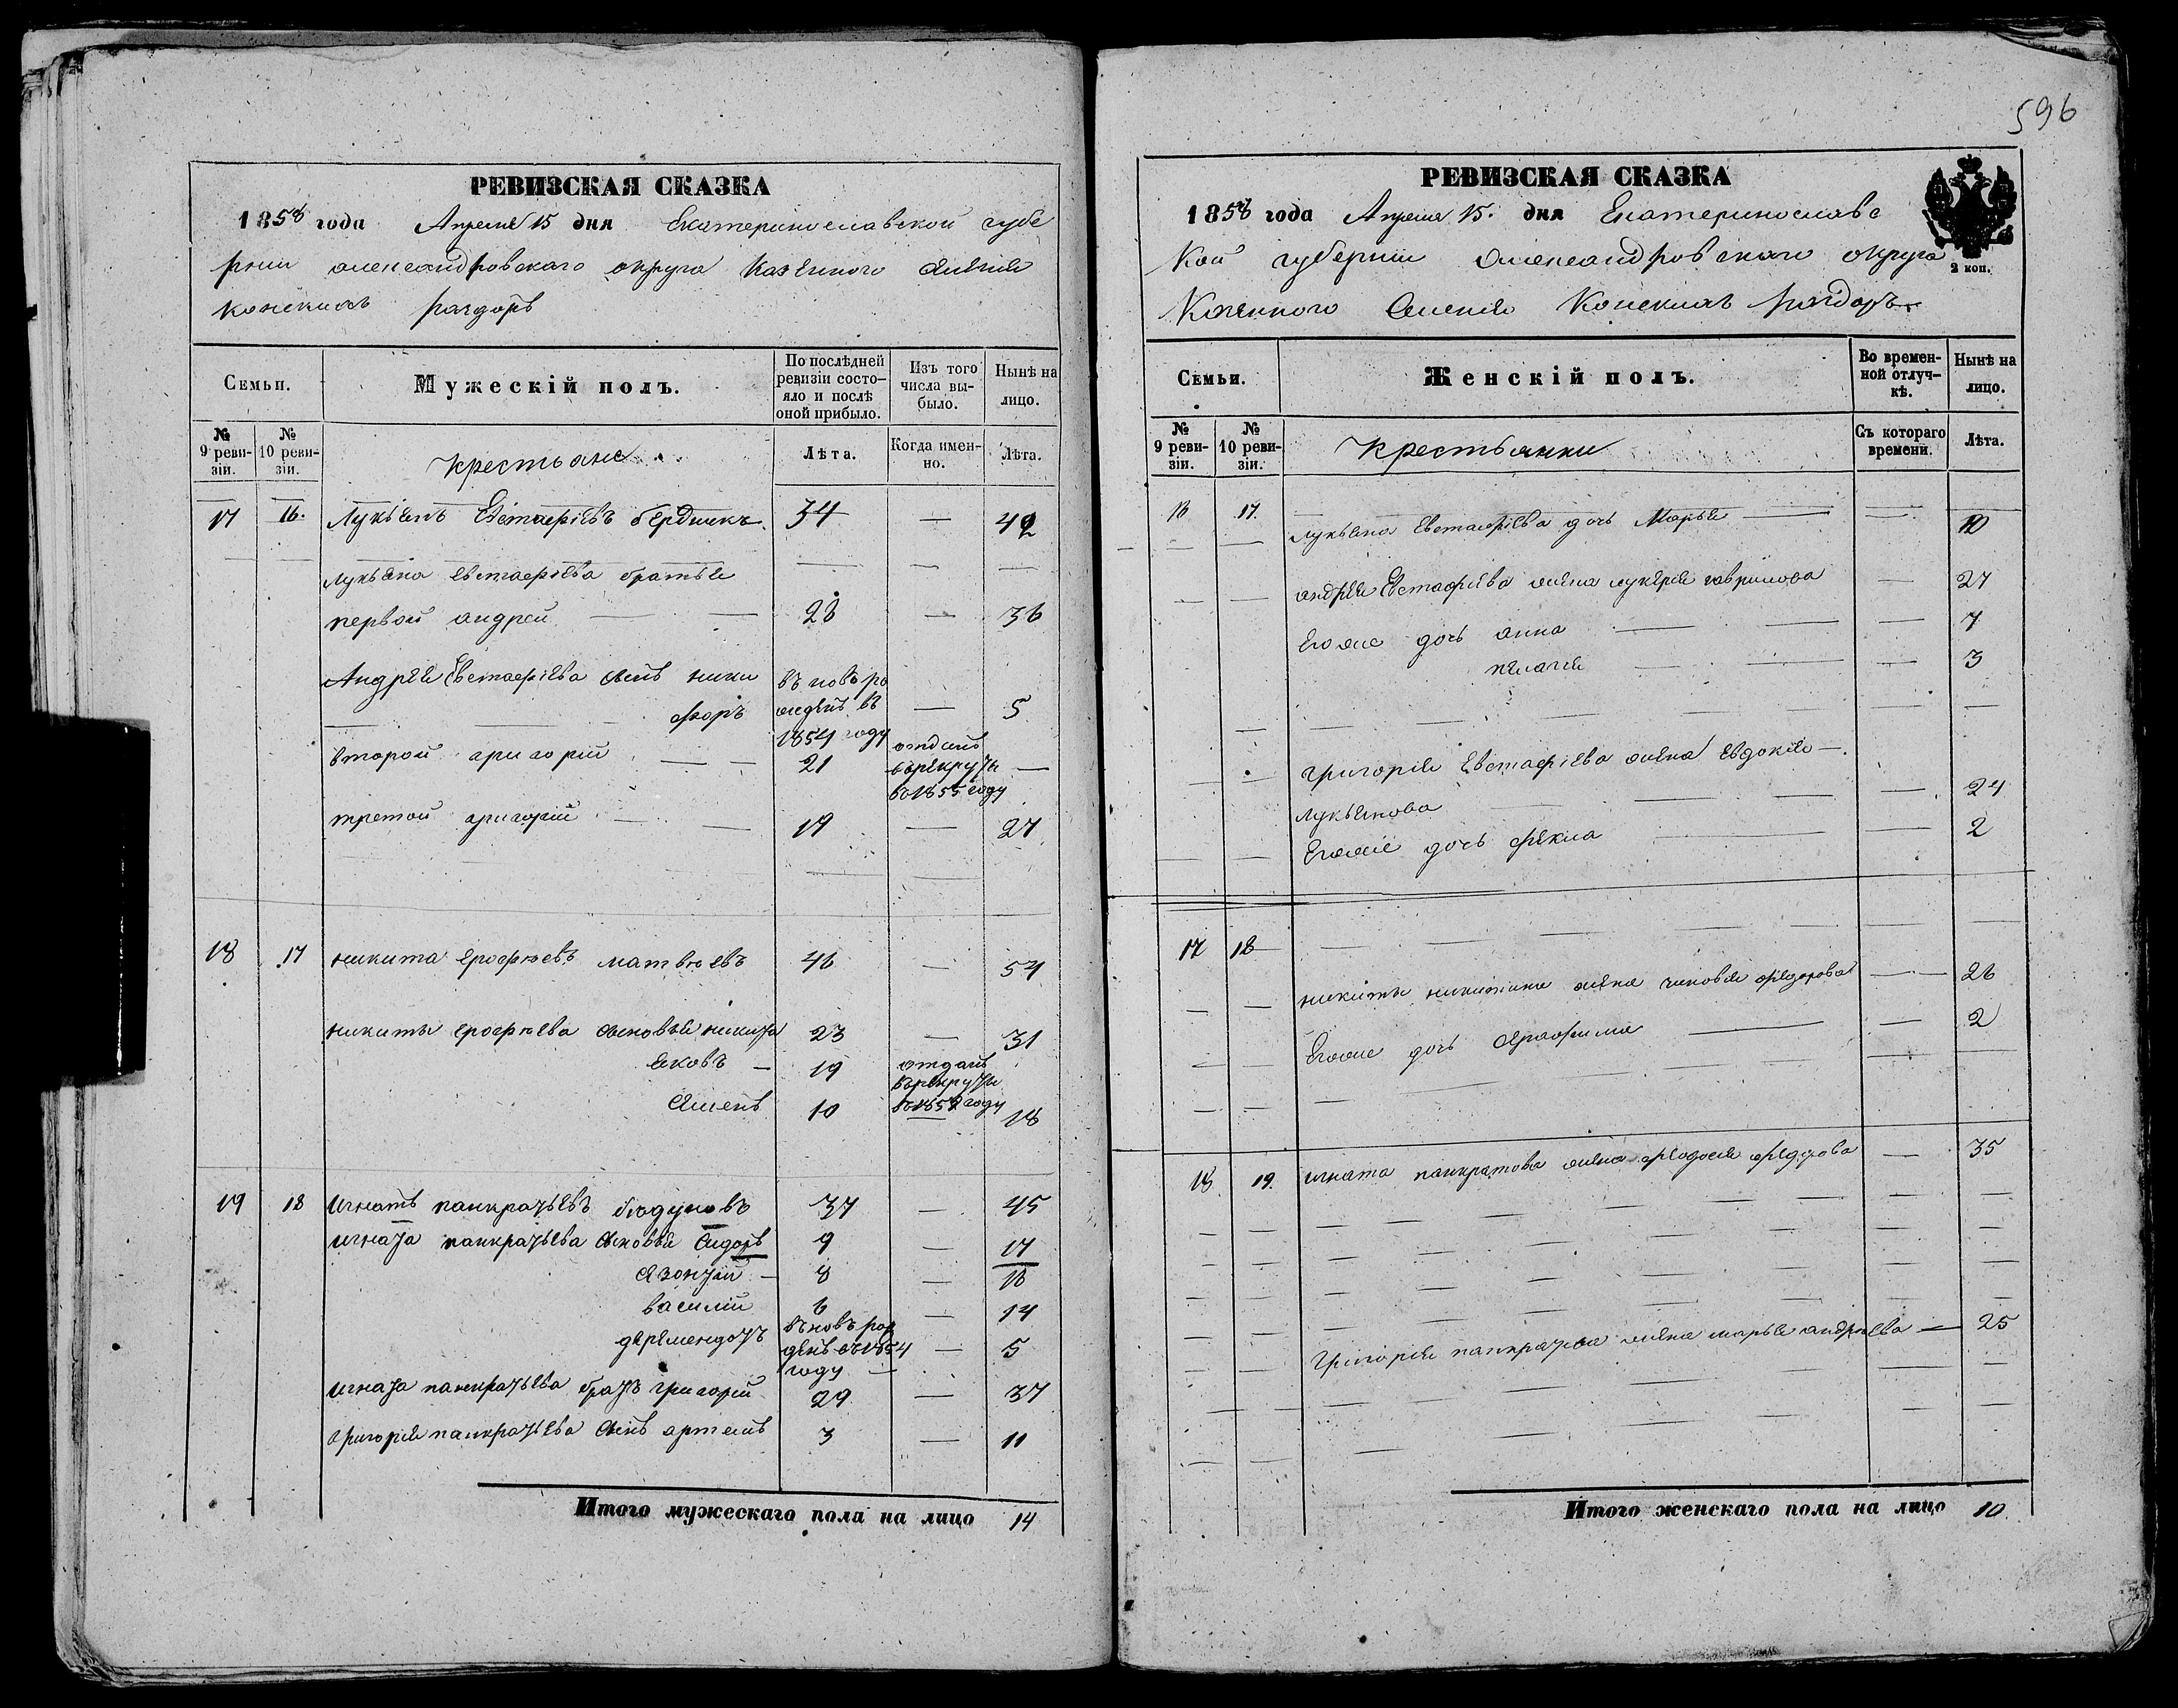 РЕВИЗСКАЯ СКАЗКА
1858 года Апреля 15 дня Екатеринославской губе
рнии александровскаго округа Казенного имения
Конских раздоръ
Семьи.
Мужескій полъ.
По послѣдней ревизіи состояло и послѣ оной прибыло.
Изъ того числа выбыло.
Нынѣ на лицо.
№ 9 ревизіи.
№ 10 ревизіи.
крестьяне
Лѣта.
Когда именно.
Лѣта.
17 16. Лукьянъ Евстафіевъ бердникъ 34 — 42
Лукьяна евстафіева братья
первой андрей 28 — 36
Андрея Евстафіева сынъ ники
форъ
въ новъ ро
жденъ въ
1854 году
— 5
второй григорій 21
отданъ
в рекруты
в 1855 году
—
третой григорій 19 — 27
18 17 никита ерофѣевъ матвѣевъ 46 — 54
никиты ерофѣева сыновья никита 23 — 31
яковъ — 19
отданъ
в рекруты
в 185 году
10 18
19 18 игнатъ панкратьевъ бѣдуновъ 37 — 45
игната панкратьева сыновья Сидоръ 9 — 17
8 — 16
василій 6 — 14
въ новъ рож
денъ въ 1854
году —
— 5
игната панкратьева братъ григорій 29 — 37
григорія панкратьева сынъ артемъ 3 — 11
Итого мужескаго пола на лицо 14
596
РЕВИЗСКАЯ СКАЗКА
1858 года Апреля 15. дня Екатеринославс
кой губернии александровскаго округа
2 коп.
Казенного имения Конских раздоръ
Семьи.
Женскій полъ.
Во временной отлучкѣ.
Нынѣ на лицо.
№ 9 ревизіи.
№ 10 ревизіи.
крестьянки
Съ котораго времени.
Лѣта.
16 17. Лукьяна Евстафіева дочь Марья — 10
андрея Евстафіева жена лукерья гаврилова — 27
Егоже дочь анна — 7
пелагея — 3
григорія Евстафіева жена Евдокия —
лукьянова — 24
Егоже дочь фекла — 2
17 18
никиты никитина жена федорова — 26
Егоже дочь серафима — 2
18 19. игната панкратова жена феодосия федорова — 35
григорія панкратова жена марья андреева — 25
Итого женскаго пола на лицо 10.